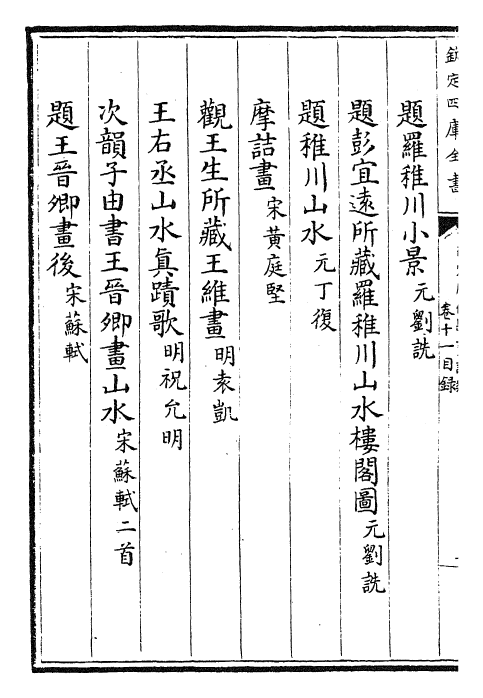 欽定四庫全書
卷十一目錄
題羅稚川小景 元劉詵
題彭宜遠所藏羅稚川山水樓閣圖 元劉詵
題稚川山水 元丁復
摩詰畫 宋黃庭堅
觀王生所藏王維畫 明袁凱
王右丞山水眞蹟歌 明祝允明
次韻子由書王晉卿畫山水 宋蘇軾二首
題王晉卿畫後 宋蘇軾